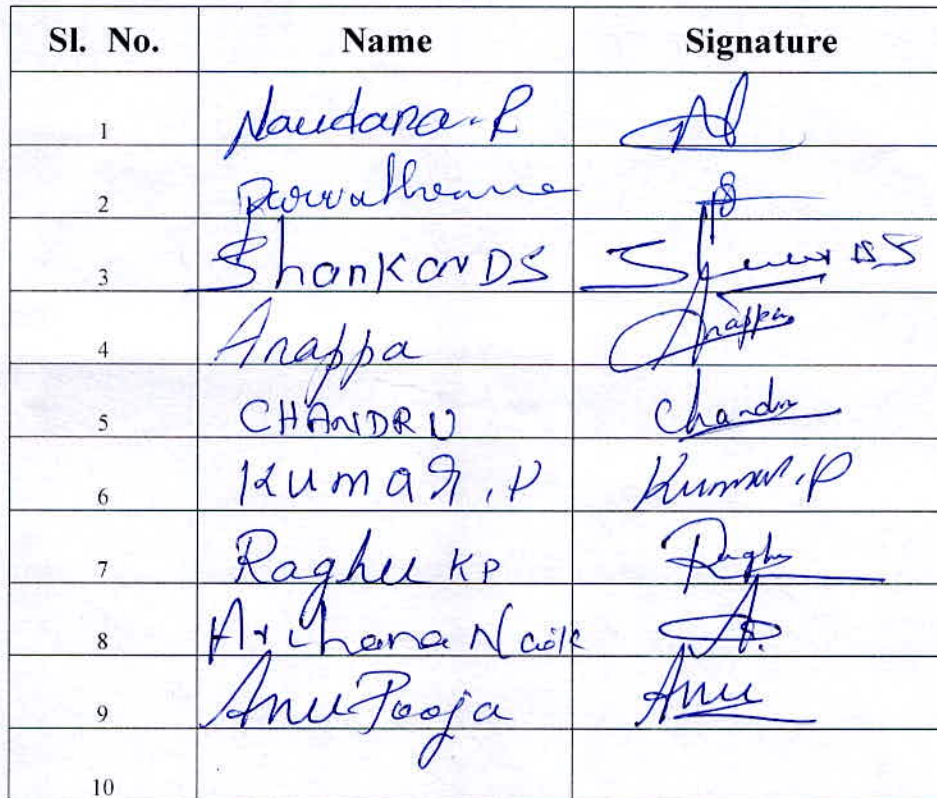 Sl. No. Name Signature
1 Nandana.R
2 Parvathamma
3 Shankar DS
4 Anappa Anappa
5 CHANDRU Chandru
6 Kumar.P Kumar.P
7 Raghu KP Raghu
8 Archana Naik A.
9 Anu Pooja Anu
10